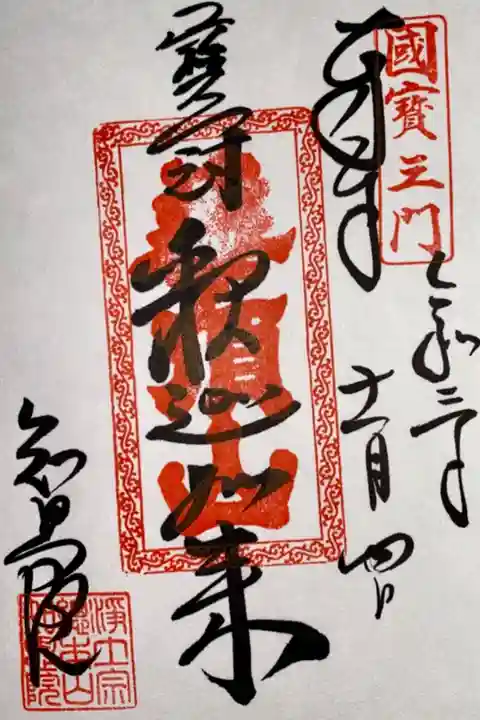 國寶三門
奉拝
令和二年
十一月四日
寶冠釈迦如来
華頂山
知恩院
淨土宗
總本山
知恩院